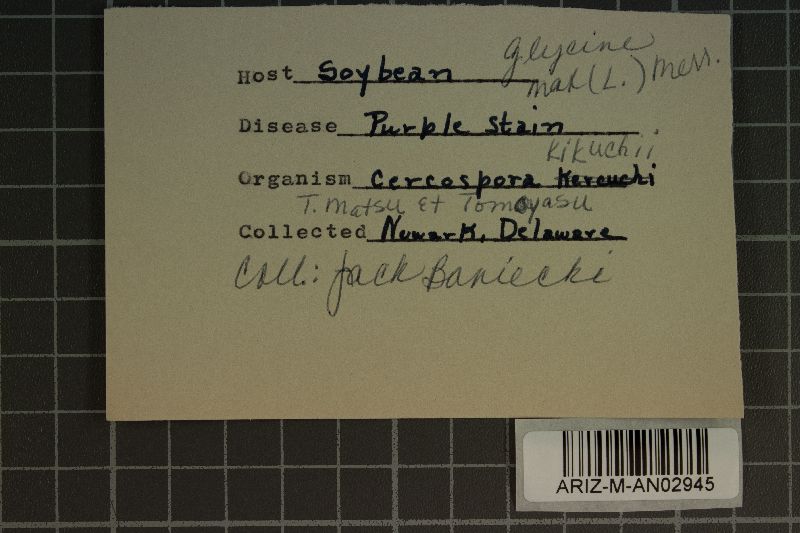 Host Soybean Glycine
max (L.) Merr.
Disease Purple Stain
Kikuchii
Organism Cercospora Kercuchi
T. Matsu et Tomoyasu
Collected Newark, Delaware
Coll.: Jack Baniecki
ARIZ-M-AN02945